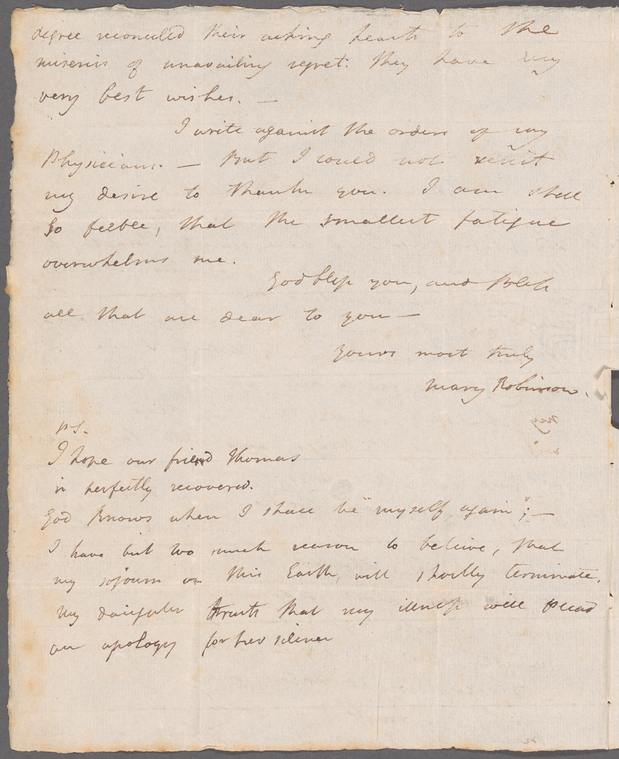 degree reconciled their aching hearts to the
miseries of unavailing regret: They have my
very best wishes. —
I write against the orders of my
Physicians. — But I could not resist
my desire to thank you. I am still
So feeble, that the smallest fatigue
overwhelms me.
God bless you, and Bless
all that are dear to you —
Yours most truly
Mary Robinson.
PS.
I hope our friend Thomas
is perfectly recovered.
God Knows when I shall be "myself again"; —
I have but too much reason to believe, that
my sojourn on this Earth, will shortly terminate.
My daughter trusts that my illness will plead
an apology for her silence